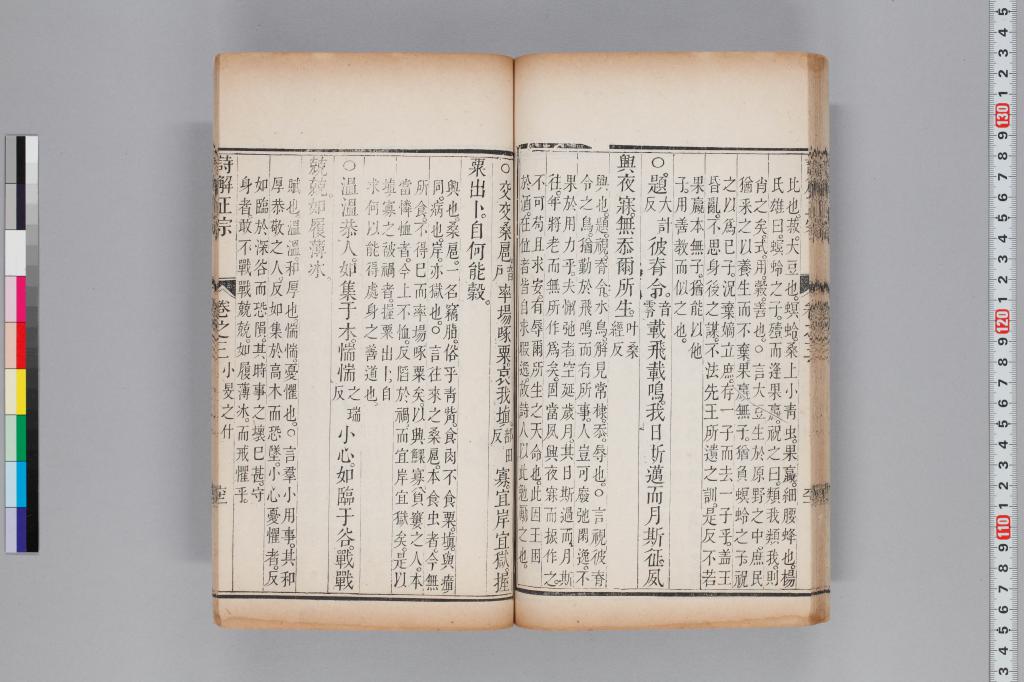 比也菽大豆也螟蛉桑上小靑虫果蠃細腰蜂也揚
氏雄曰螟蛉之子殪而逢果蠃祝之曰類我類我則
肖之矣式用穀善也○言大豆生於原野之中庶民
猶采之以養生而不棄果蠃無子猶負螟蛉之子祝
之以爲已子況棄嫡立庶存一子而去一子乎盖王
昏亂不思身後之謀不法先王所遺之訓是反不若
果蠃本無子猶能以他
子用善教而似之也
○題大計反彼脊令音零載飛載鳴我日斯邁而月斯征夙
興夜寐無忝爾所生叶桑經反
興也題視脊令水鳥解見常棣忝辱也○言視彼脊
令之鳥猶勤於飛鳴而有所事人豈可廢弛閑逸不
果於用力乎夫懈弛者空延歲月其日斯過而月斯
往年將老而無所作爲矣固當夙興夜寐而振作之
不可苟且求安有辱爾所生之天命也此因王困
於酒在位者皆自求暇逸故詩人以此勉勵之也
○交交桑扈音戶率場啄粟哀我塡都田反寡宜岸宜獄握
粟出卜自何能穀
興也桑扈一名竊脂俗乎靑觜食肉不食粟塡與瘨
同病也岸亦獄也○言往來之桑扈本食虫者今無
所食不得已而率場啄粟矣以興鰥寡貧窶之人本
當憐恤者今上不恤反陷於禍而宜岸宜獄矣是以
塡寡之被禍者握粟出卜自
求何以能得處身之善道也
○溫溫恭人如集于木惴惴之瑞反小心如臨于谷戰戰
兢兢如履薄冰
賦也溫溫和厚也惴惴憂懼也○言羣小用事其和
厚恭敬之人反如集於高木而恐墜小心憂懼者反
如臨於深谷而恐隕其時事之壞已甚守
身者敢不戰戰兢兢如履薄冰而戒懼乎
詩解正宗
卷之三
小旻之什